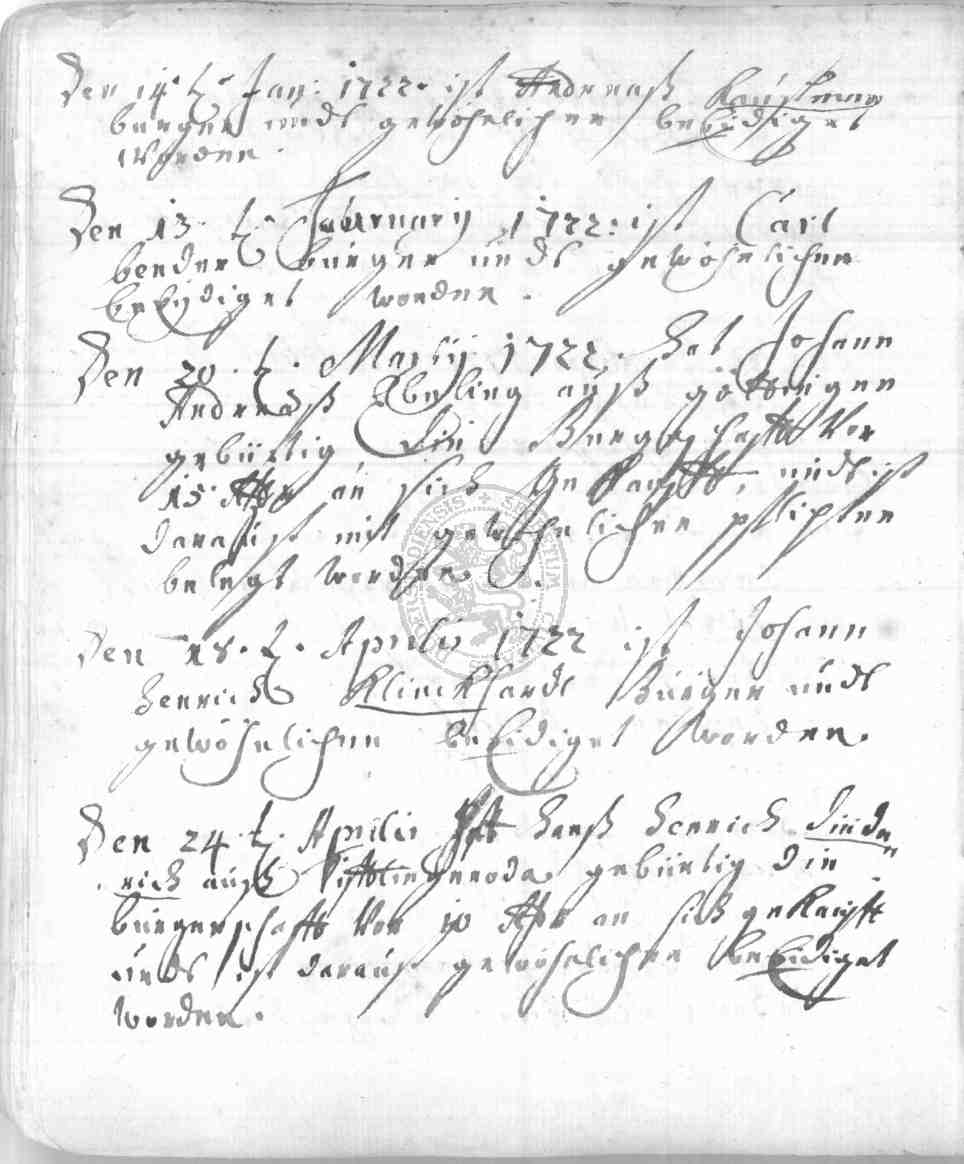 Den 14t. Jan: 1722. ist Andreaß Kaufman
burger undt gewöhnlicher beeÿdiget
worden.
Den 13. t. Februarij 1722: ist Carl
bender burger undt gewöhnlicher
beeÿdiget worden.
Den 20. t. Martÿ 1722. hat Johann
Andreaß Ebeling auß göttingen
gebürtig die Burgerschafft vor
15 thlr an sich gekaufft, undt ist
darauf mit gewöhnlichen pflichten
belegt worden.
Den 18. t. Aprilis 1722 ist Johann
Henrich Klinckhardt Burger undt
gewöhnlicher beeidiget worden.
Den 24. t. Aprilis hatt Hanß Henrich Diede
rich auß Tifftlingeroda gebürtig die
burgerschafft vor 10 thlr an sich gekaufft
undt ist darauf gewöhnlicher beeidiget
worden.